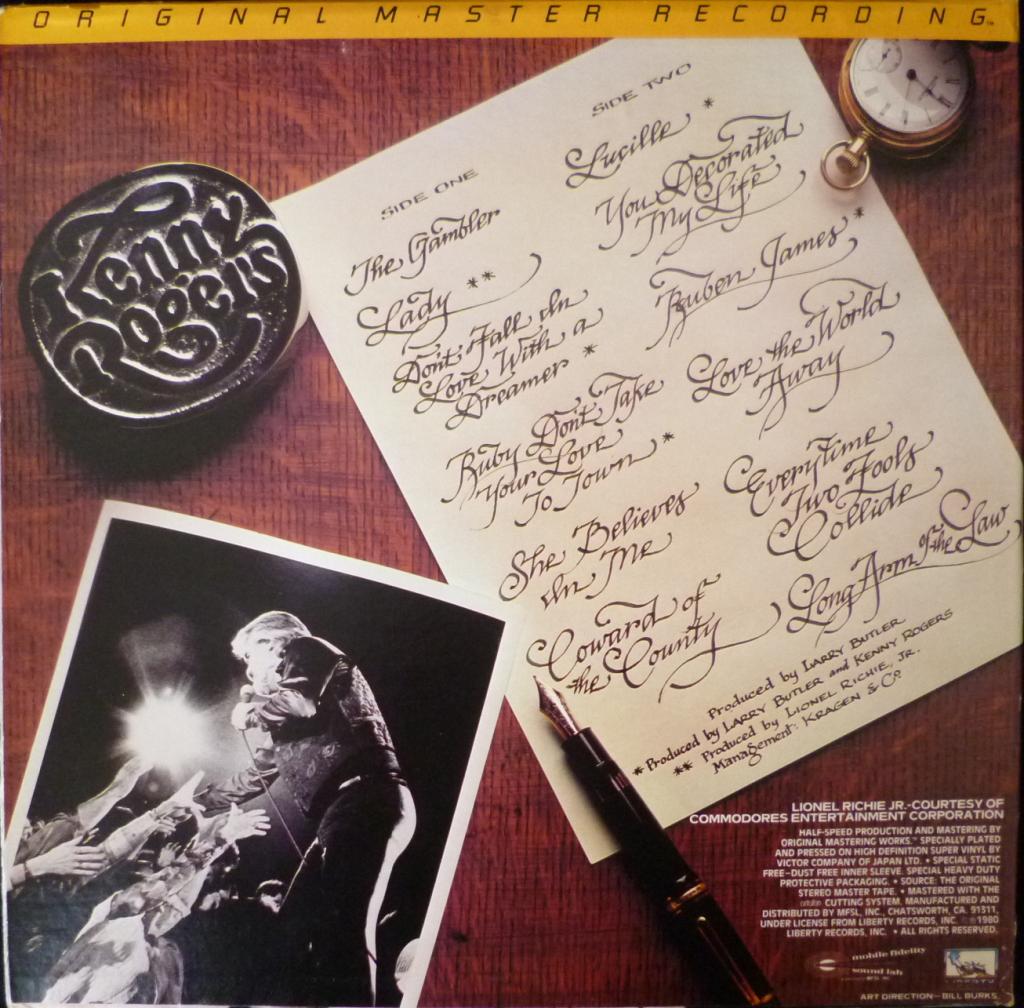 ORIGINAL MASTER RECORDING™
Kenny
Rogers
SIDE ONE
The Gambler
Lady **
Don't Fall In
Love With a
Dreamer *
Ruby Don't Take
Your Love
To Town *
She Believes
In Me
Coward of
the County
SIDE TWO
Lucille *
You Decorated
My Life
Reuben James *
Love the World
Away
Everytime
Two Fools
Collide
Long Arm of the Law
Produced by LARRY BUTLER
* Produced by LARRY BUTLER and KENNY ROGERS
** Produced by LIONEL RICHIE, JR.
Management: KRAGEN & CO.
LIONEL RICHIE JR.-COURTESY OF
COMMODORES ENTERTAINMENT CORPORATION
HALF-SPEED PRODUCTION AND MASTERING BY
ORIGINAL MASTERING WORKS.™ SPECIALLY PLATED
AND PRESSED ON HIGH DEFINITION SUPER VINYL BY
VICTOR COMPANY OF JAPAN LTD. • SPECIAL STATIC
FREE-DUST FREE INNER SLEEVE. SPECIAL HEAVY DUTY
PROTECTIVE PACKAGING. • SOURCE: THE ORIGINAL
STEREO MASTER TAPE. • MASTERED WITH THE
CUTTING SYSTEM. MANUFACTURED AND
DISTRIBUTED BY MFSL, INC., CHATSWORTH, CA. 91311,
UNDER LICENSE FROM LIBERTY RECORDS, INC. 1980
LIBERTY RECORDS, INC. • ALL RIGHTS RESERVED.
mobile fidelity
sound lab
LIBERTY
ART DIRECTION—BILL BURKS